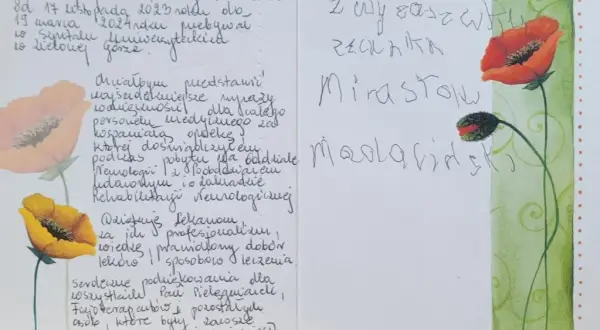 Od 17 listopada 2023 roku do
19 marca 2024 roku przebywał
w Szpitalu Uniwersyteckim
w Zielonej Górze.
Chciałbym przedstawić
najserdeczniejsze wyrazy
wdzięczności dla całego
personelu medycznego za
wspaniałą opiekę,
której doświadczyłem
podczas pobytu na Oddziale
Neurologii z Pododdziałem
Udarowym i o Zakładzie
Rehabilitacji Neurologicznej
Dziękuję lekarzom,
za ich profesjonalizm,
wiedzę, prawidłowy dobór
leków i sposobów leczenia
Serdeczne podziękowania dla
wszystkich Pań Pielęgniarek,
Fizjoterapeutów i pozostałych
osób, które były zawsze
Z wyrazami
Mirosław